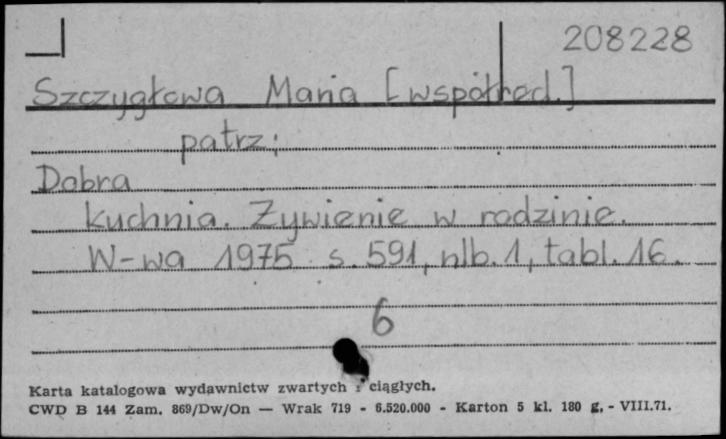 208228
Szczygłowa Maria [współred.]
patrz:
Dobra
kuchnia. Żywienie w rodzinie.
W-wa 1975 s. 591, nlb. 1, tabl. 16.
6
Karta katalogowa wydawnictw zwartych i ciągłych.
CWD B 144 Zam. 869/Dw/On — Wrak 719 - 6.520.000 - Karton 5 kl. 180 g. - VIII.71.